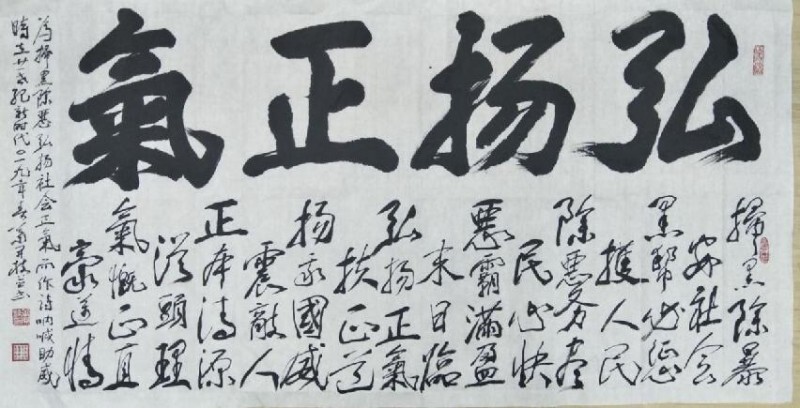 弘扬正氣
掃黑除暴
安社会
黑帮必惩
護人民
除惡务尽
民心快
惡霸滿盈
末日臨
弘扬正氣
扶正道
扬我國威
震敵人
正本清源
從頭理
氣慨正直
豪迈情
為掃黑除惡弘扬社会正氣而作诗呐喊助威
時在廿一世纪新时代二〇一九年春